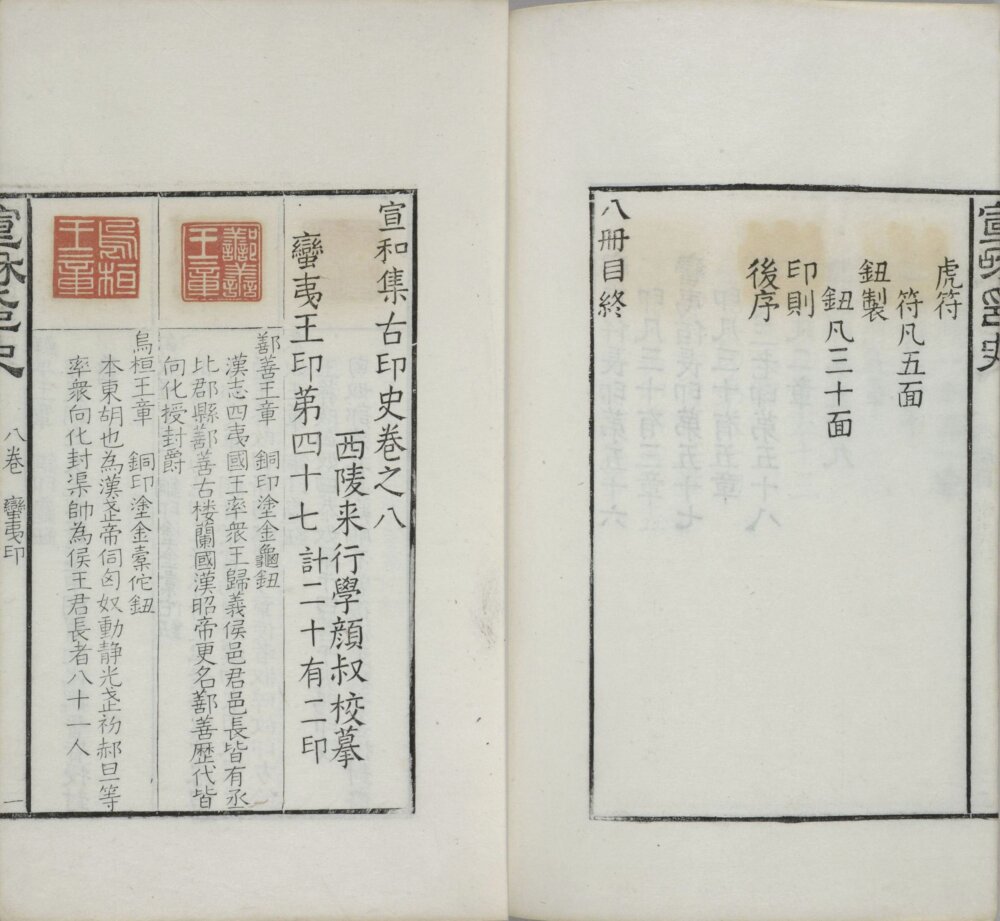 虎符
符凡五面
鈕製
鈕凡三十面
印則
後序
八冊目終
宣和集古印史卷之八
西陵来行學顔叔校摹
蠻夷王印第四十七 計二十有二印
鄯善王章
鄯善王章 銅印塗金龜鈕
漢志四夷國王率衆王歸義侯邑君邑長皆有丞
比郡縣鄯善古楼蘭國漢昭帝更名鄯善歴代皆
向化授封爵
烏桓王章
烏桓王章 銅印塗金橐佗鈕
本東胡也為漢武帝伺匈奴動靜光武初郝旦等
率衆向化封渠帥為侯王君長者八十一人
八卷 蠻夷印 一